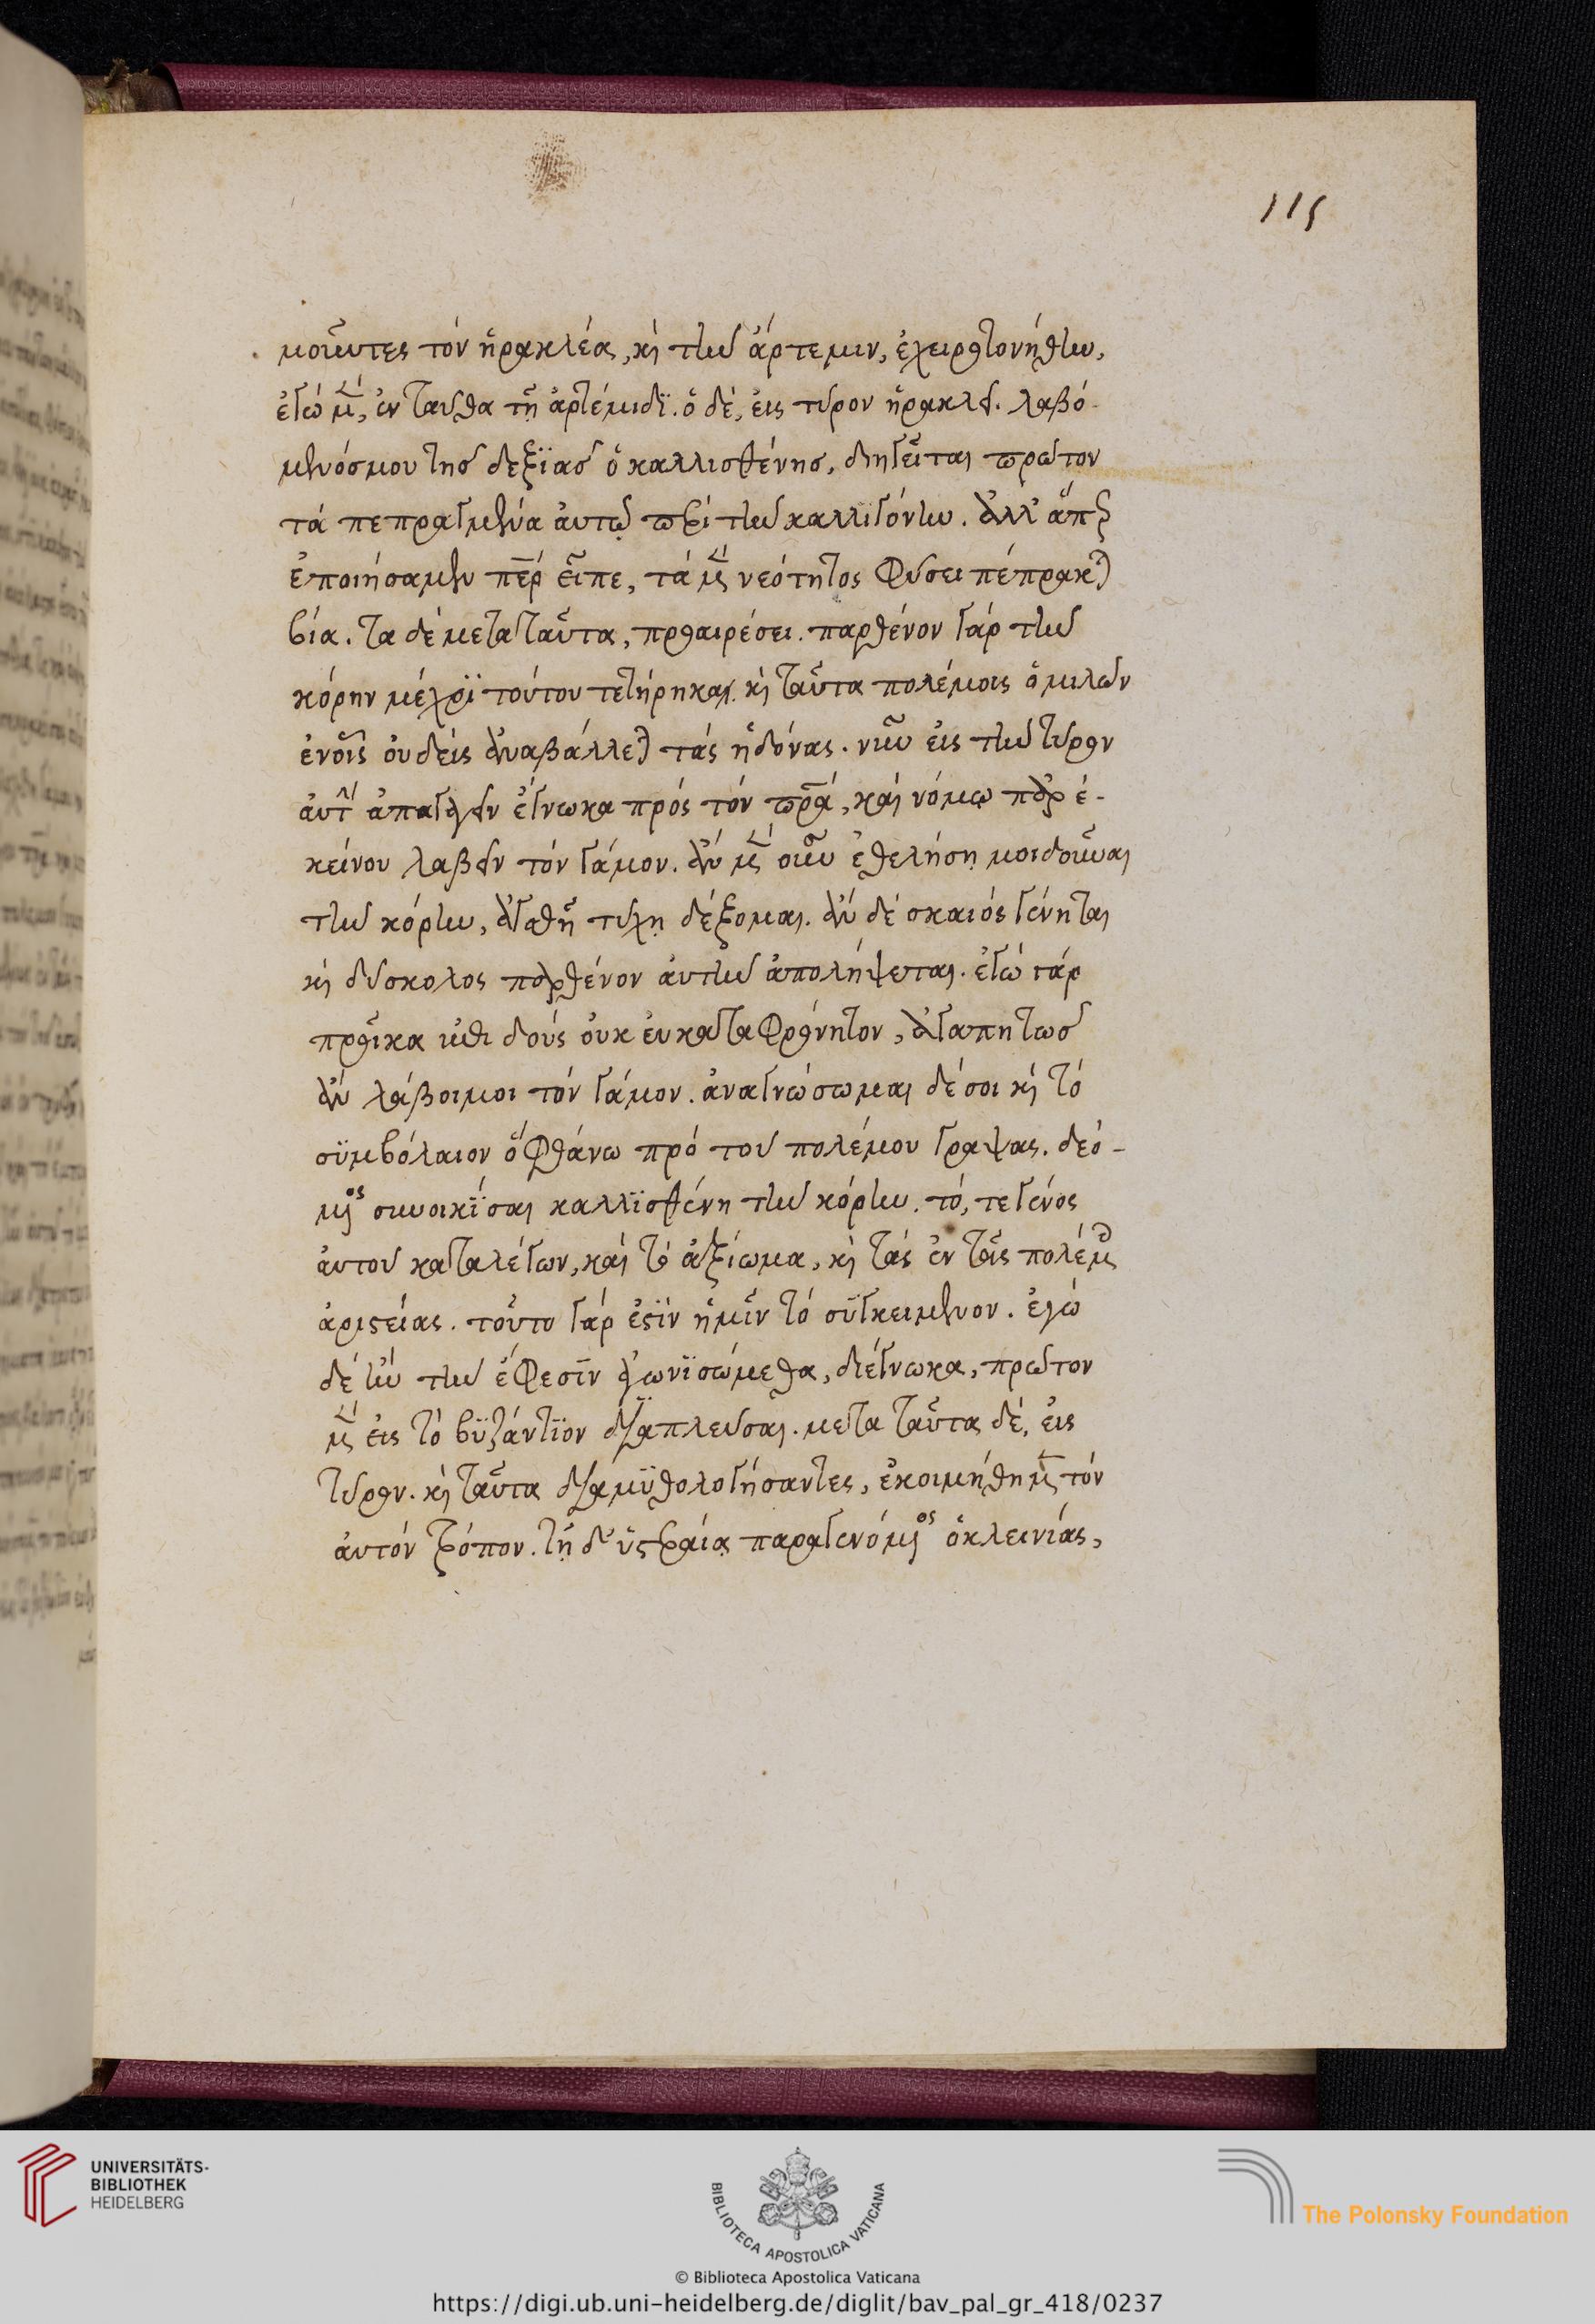 115
μοῦντες τὸν ἡρακλέα, κὶ τὴν ἄρτεμιν, ἐχειροτονήθην,
ἐγὼ μ̅, ἐνταῦθα τῆ ἀρτέμιδϊ. ὁ δέ, εἰς τύρον ἡρακλεῖ. λαβό-
μενόσμου τῆσ δεξϊᾶσ ὁ καλλισθένησ, διηγεῖται πρῶτον
τὰ πεπραγμένα ἀυτῶ περὶ τὴν καλλϊγόνην. ἀλλ' ἅπερ
ἐποιήσαμεν πε̅ρ εἶπε, τὰ μ̅ νεότητος φύσει πέπρακται
βία. τα δέ μετα ταῦτα, προαιρέσει. παρθένον γάρ τὴν
κόρην μέχρϊ τούτου τετήρηκα, κὶ ταῦτα πολέμοις ὁμιλῶν
ἐνοἷς ὀυδεὶς ἀναβάλλεται τάς ἡδόνας. νῦν εἰς τὴν τύρον
ἀυτὴ ἀπαγαγεῖν ἔγνωκα πρός τόν πρα, καὶ νόμω παρ ἐ-
κείνου λαβεῖν τόν γάμον. ἀν μ̅ οὖν ἐθελήση μοιδοῦναι
τὴν κόρην, ἀγαθῆ τύχη δέξομαι. ἀν δέ σκαιός γένηται
κὶ δύσκολος παρθένον ἀυτὴν ἀπολήψεται. ἐγὼ γάρ
προῖκα ἐπι δούς ὀυκ ἐυκαταφρόνητον, ἀγαπητῶσ
ἀν λάβοιμοι τόν γάμον. ἀναγνώσωμαι δέσοι κὶ τό
σϋμβόλαιον ὃ φθάνω πρό του πολέμου γραψας. δεό-
μενος συνοικϊσαι καλλϊσθένη τὴν κόρην. τό, τε γένος
ἀυτου καταλέγων, καὶ τὸ ἀξίωμα, κὶ τάς ἐν ταῖς πολέμοις
ἀριστείας. τοῦτο γάρ ἐστϊν ἡμῖν τό σϋγκειμενον. ἐγὼ
δέ ἢν τὴν ἔφεσϊν ἀγωνϊσώμεθα, διέγνωκα, πρῶτον
μ̅ εἰς τὸ βϋζάντϊον διαπλεῦσαι. μετα ταῦτα δέ, εἰς
τύρον. κὶ ταῦτα διαμϋθολογήσαντες, ἐκοιμήθημεν τόν
ἀυτόν τρόπον. τῆ δ' ὑστεραία παραγενόμενος ὁκλεινίας,
UNIVERSITÄTS-
BIBLIOTHEK
HEIDELBERG
BIBLIOTECA APOSTOLICA VATICANA
The Polonsky Foundation
© Biblioteca Apostolica Vaticana
https://digi.ub.uni-heidelberg.de/diglit/bav_pal_gr_418/0237